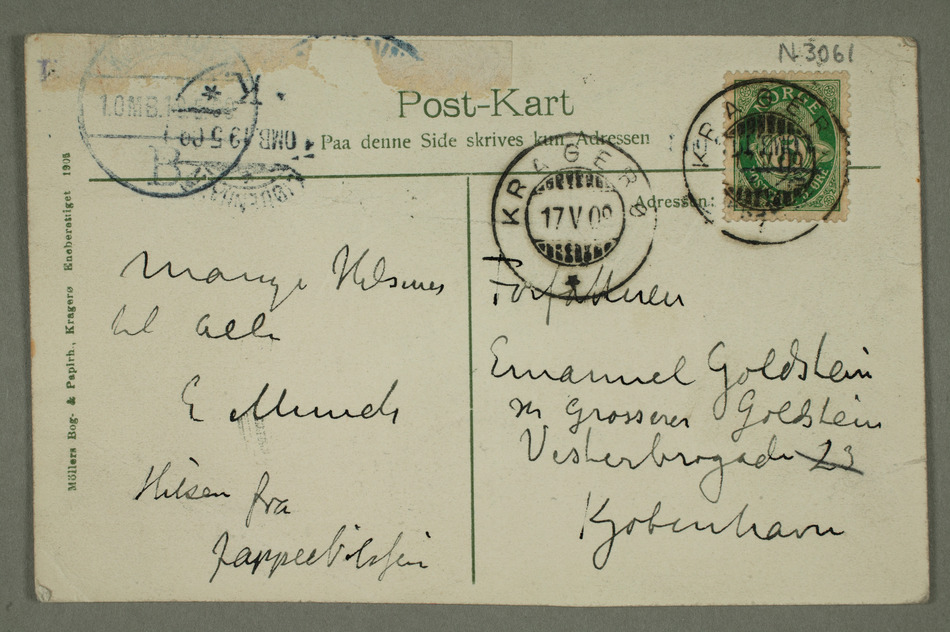 N 3061
K.
Post-Kart
Paa denne Side skrives kun Adressen
NORGE
KRAGERØ
KRAGERØ
17 V 09
Adressen:
B
Mange Hilsener
til alle
E Munch
Hilsen fra
Jappe Nilssen
Forfatteren
Emanuel Goldstein
Grosserer Goldstein
Vesterbrogade 23
Kjøbenhavn
Möllers Bog- & Papirh., Kragerø Eneberettiget 1905